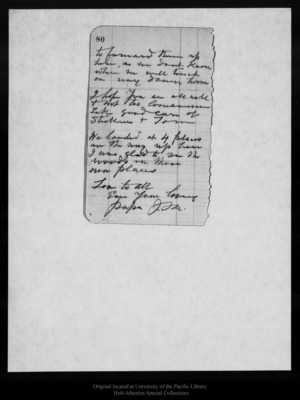 80
to forward them up
here, as we dont know
when we will touch
on way down home
I hope you are all well
& not
take good care of
& Tom
We landed at 4 places
on the way up here
I was glad to see the
woods in those
new places
Love to all
Ever Your loving
Papa J.M.
Original located at University of the Pacific Library
Holt-Atherton Special Collections